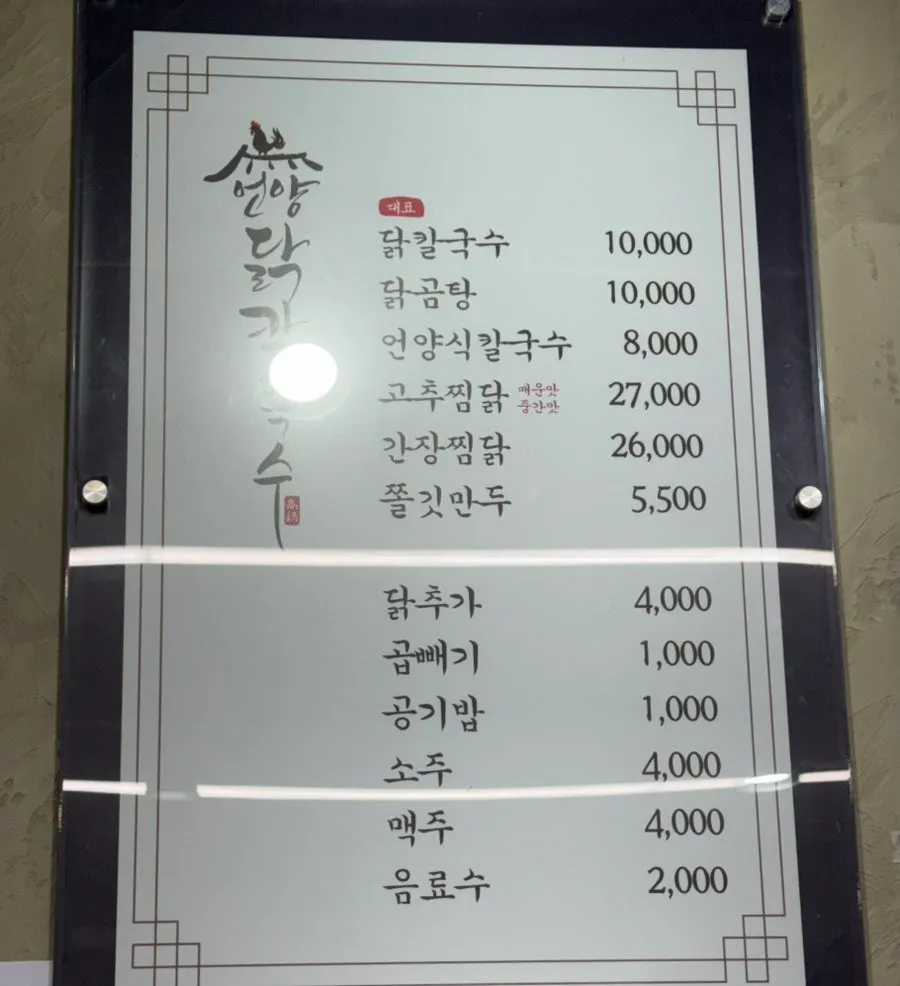 언양
닭
수
대표
닭칼국수 10,000
닭곰탕 10,000
언양식칼국수 8,000
고추찜닭 매운맛 중간맛 27,000
간장찜닭 26,000
쫄깃만두 5,500
닭추가 4,000
곱빼기 1,000
공기밥 1,000
소주 4,000
맥주 4,000
음료수 2,000